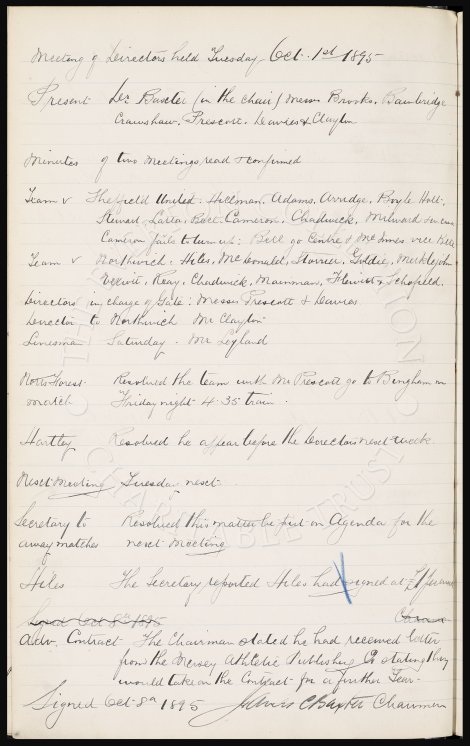 Meeting of Directors held Tuesday Oct. 1st 1895
Present Dr Baxter (in the chair) Messrs Brooks, Bainbridge
Crawshaw, Prescott, Davies & Clayton
Minutes of two Meetings read & confirmed
Team v Sheffield United. Hillman, Adams, Arridge, Boyle Holt
Stewart, Latta, Bell, Cameron, Chadwick, Milward in case
Cameron fails to turn up: Bell go Centre & McInnes vice Bell
Team v Northwich: Hiles, McDonald, Storrier, Goldie, Meiklejohn
Elliott, Reay, Chadwick, Mainman, Flewitt & Schofield
Directors in charge of Gate: Messrs Prescott & Davies
Director to Northwich Mr Clayton
Linesman Saturday - Mr Leyland
Notts Forest Resolved the team with Mr Prescott go to Bingham on
match Friday night 4.35 train.
Hartley Resolved he appear before the Directors next week
Next Meeting Tuesday next
Secretary to Resolved this matter be put on Agenda for the
away matches next Meeting
Hiles The Secretary reported Hiles had signed at £1 per
Signed Oct 8th 1895 Chairman
Adv. Contract The Chairman stated he had received letter
from the Mersey Athletic Publishing Co stating they
would take on the Contract for a further Year.
Signed Oct 8th 1895 James C Baxter Chairman
CHARITABLE TRUST